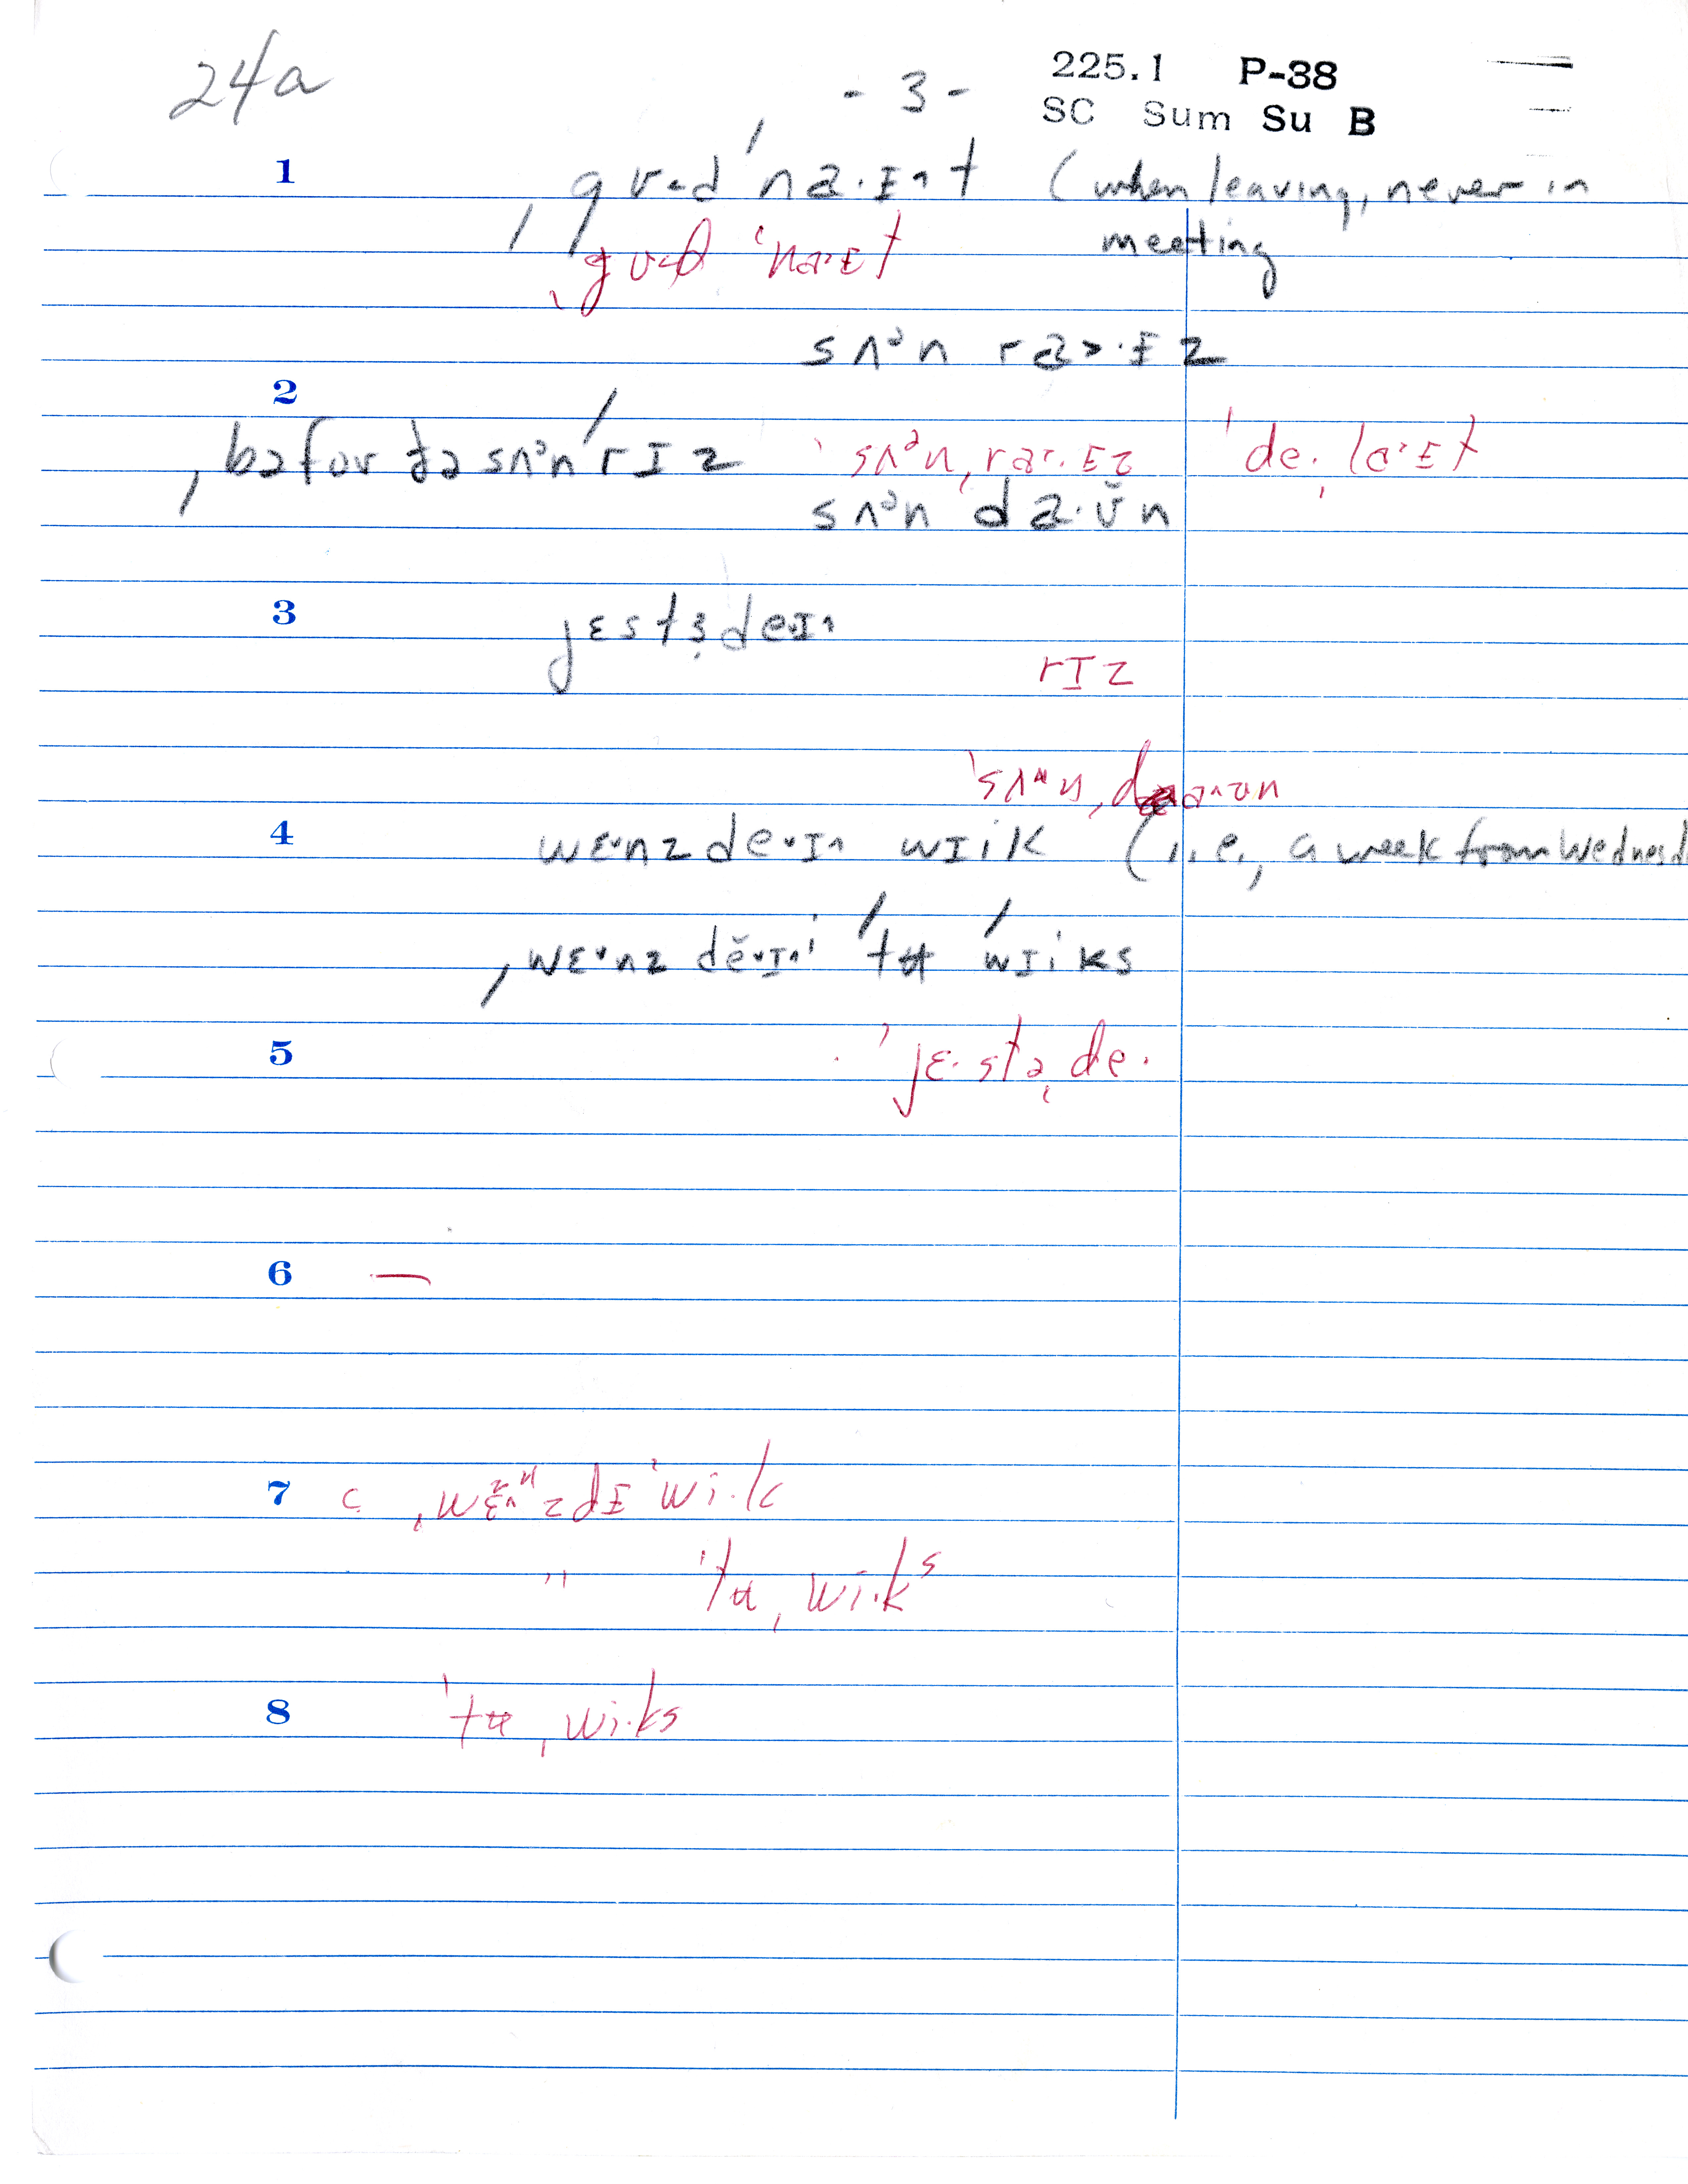 24a
- 3 -
225.1 P-38
SC Sum Su B
1 ˌgʊ˂d ˈna·ɪ^t (when leaving, never in
meeting
ˌgʊ˂d ˈna·ɪt
sʌᵊn ra˃·ɪz
2
ˌbəfor ðə sʌᵊn ˈrɪz ˈsʌᵊnˌra˃·ɪz ˈdeˌla·ɪt
sʌᵊn da·ʊ̆n
3 jɛstɜ̣deɪ^
rɪz
ˈsʌᵊnˌdaʊn
4 wɛ˅nzde˅ɪ^ wɪik (i.e., a week from Wednesd
ˌwɛ˅nzdĕ˅ɪ^ ˈtʉ ˈwɪiks
5 ˈjɛ·stəˌde·
6 —
7 c ˌwɛ̃^ⁿzdɪ ˈwi·k
" ˈtʉˌwi·ks
8 ˈtʉˌwi·ks